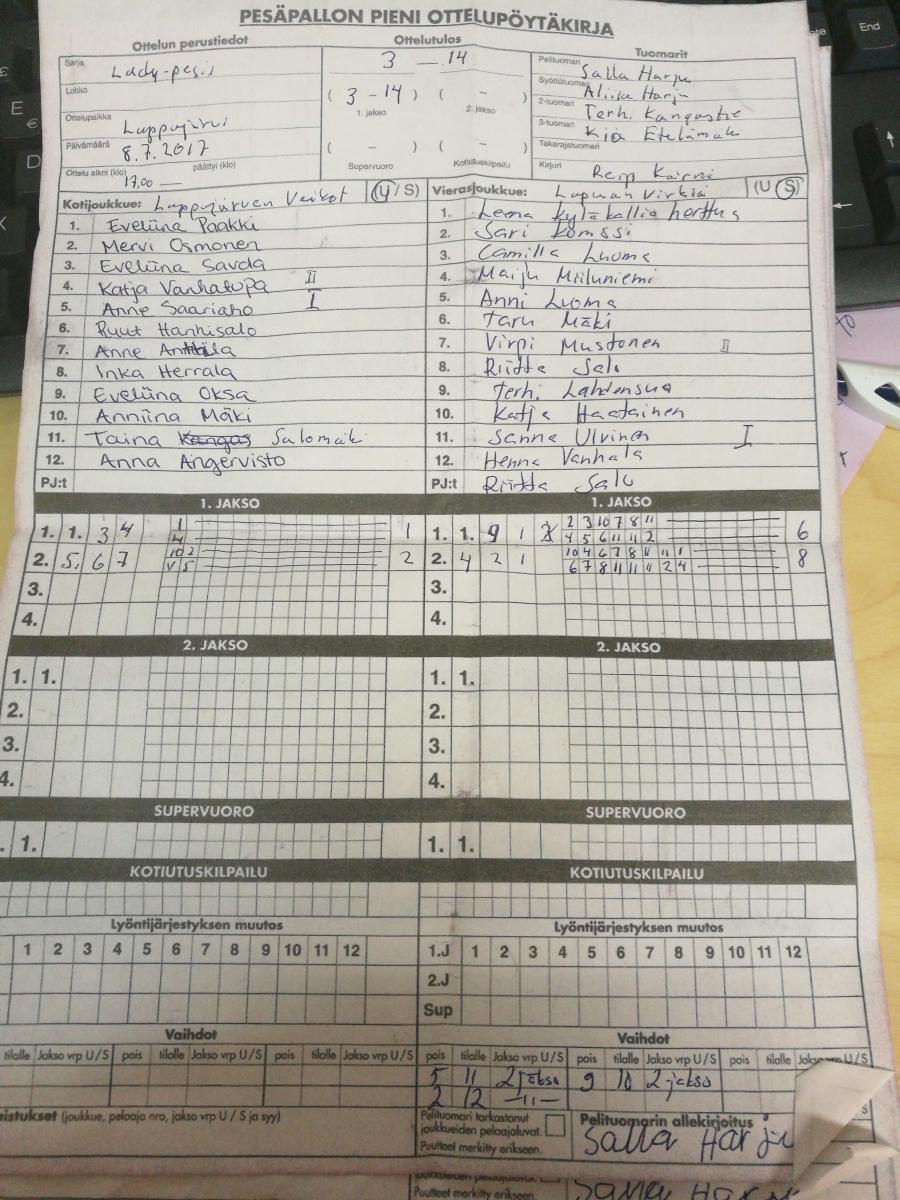 PESÄPALLON PIENI OTTELUPÖYTÄKIRJA
Ottelun perustiedot
Ottelutulos
Tuomarit
Sarja Lady-pesis
Lohko
Ottelupaikka Lappajärvi
Päivämäärä 8.7.2017
Ottelu alkoi (klo) päättyi (klo)
17,00 —
3 — 14
( 3 - 14 ) ( - )
1. jakso 2. jakso
( - ) ( - )
Supervuoro Kotiutuskilpailu
Pelituomari Salla Harju
Syöttötuomari Aliisa Harju
2-tuomari Terhi Kangastie
3-tuomari Kia Etelämäki
Takarajatuomari
Kirjuri
Kotijoukkue: Lappajärven Veikot (U / S)
1. Eveliina Paakki
2. Mervi Osmonen
3. Eveliina Savola
4. Katja Vanhatupa II
5. Anne Saariaho I
6. Ruut Hanhisalo
7. Anne Anttila
8. Inka Herrala
9. Eveliina Oksa
10. Anniina Mäki
11. Taina Kangas Salomäki
12. Anna Angervisto
PJ:t
Vierasjoukkue: Lapuan Virkiä (U S)
1. Leena Kyläkallio herttus
2. Sari Komssi
3. Camilla Luoma
4. Maiju Miiluniemi
5. Anni Luoma
6. Taru Mäki
7. Virpi Mustonen II
8. Riitta Salo
9. Terhi Lahdensuo
10. Katja Haatainen
11. Sanna Ulvinen I
12. Henna Vanhala
PJ:t Riitta Salo
1. JAKSO
1. 1. 3 4 1
4
1
2. 5, 6 7 10 2
V 5
2
3.
4.
1. JAKSO
1. 1. 9 1 2 3 10 7 8 11
4 5 6 11 11 2
6
2. 4 2 1 10 4 6 7 8 11 11 1
6 7 8 11 11 11 2 4
8
3.
4.
2. JAKSO
1. 1.
2.
3.
4.
2. JAKSO
1. 1.
2.
3.
4.
SUPERVUORO
. 1.
SUPERVUORO
1. 1.
KOTIUTUSKILPAILU
KOTIUTUSKILPAILU
Lyöntijärjestyksen muutos
1 2 3 4 5 6 7 8 9 10 11 12
Lyöntijärjestyksen muutos
1.J 1 2 3 4 5 6 7 8 9 10 11 12
2.J
Sup
Vaihdot
tilalle Jakso vrp U/S pois tilalle Jakso vrp U/S pois tilalle Jakso vrp U/S
Vaihdot
pois tilalle Jakso vrp U/S pois tilalle Jakso vrp U/S pois tilalle Jakso vrp U/S
5 11 2 jakso 9 10 2 jakso
2 12 —11—
aistukset (joukkue, pelaaja nro, jakso vrp U / S ja syy)
Pelituomari tarkastanut
joukkueiden pelaajaluvat.
Puutteet merkitty erikseen.
Pelituomarin allekirjoitus
Salla Harju
Puutteet merkitty erikseen.